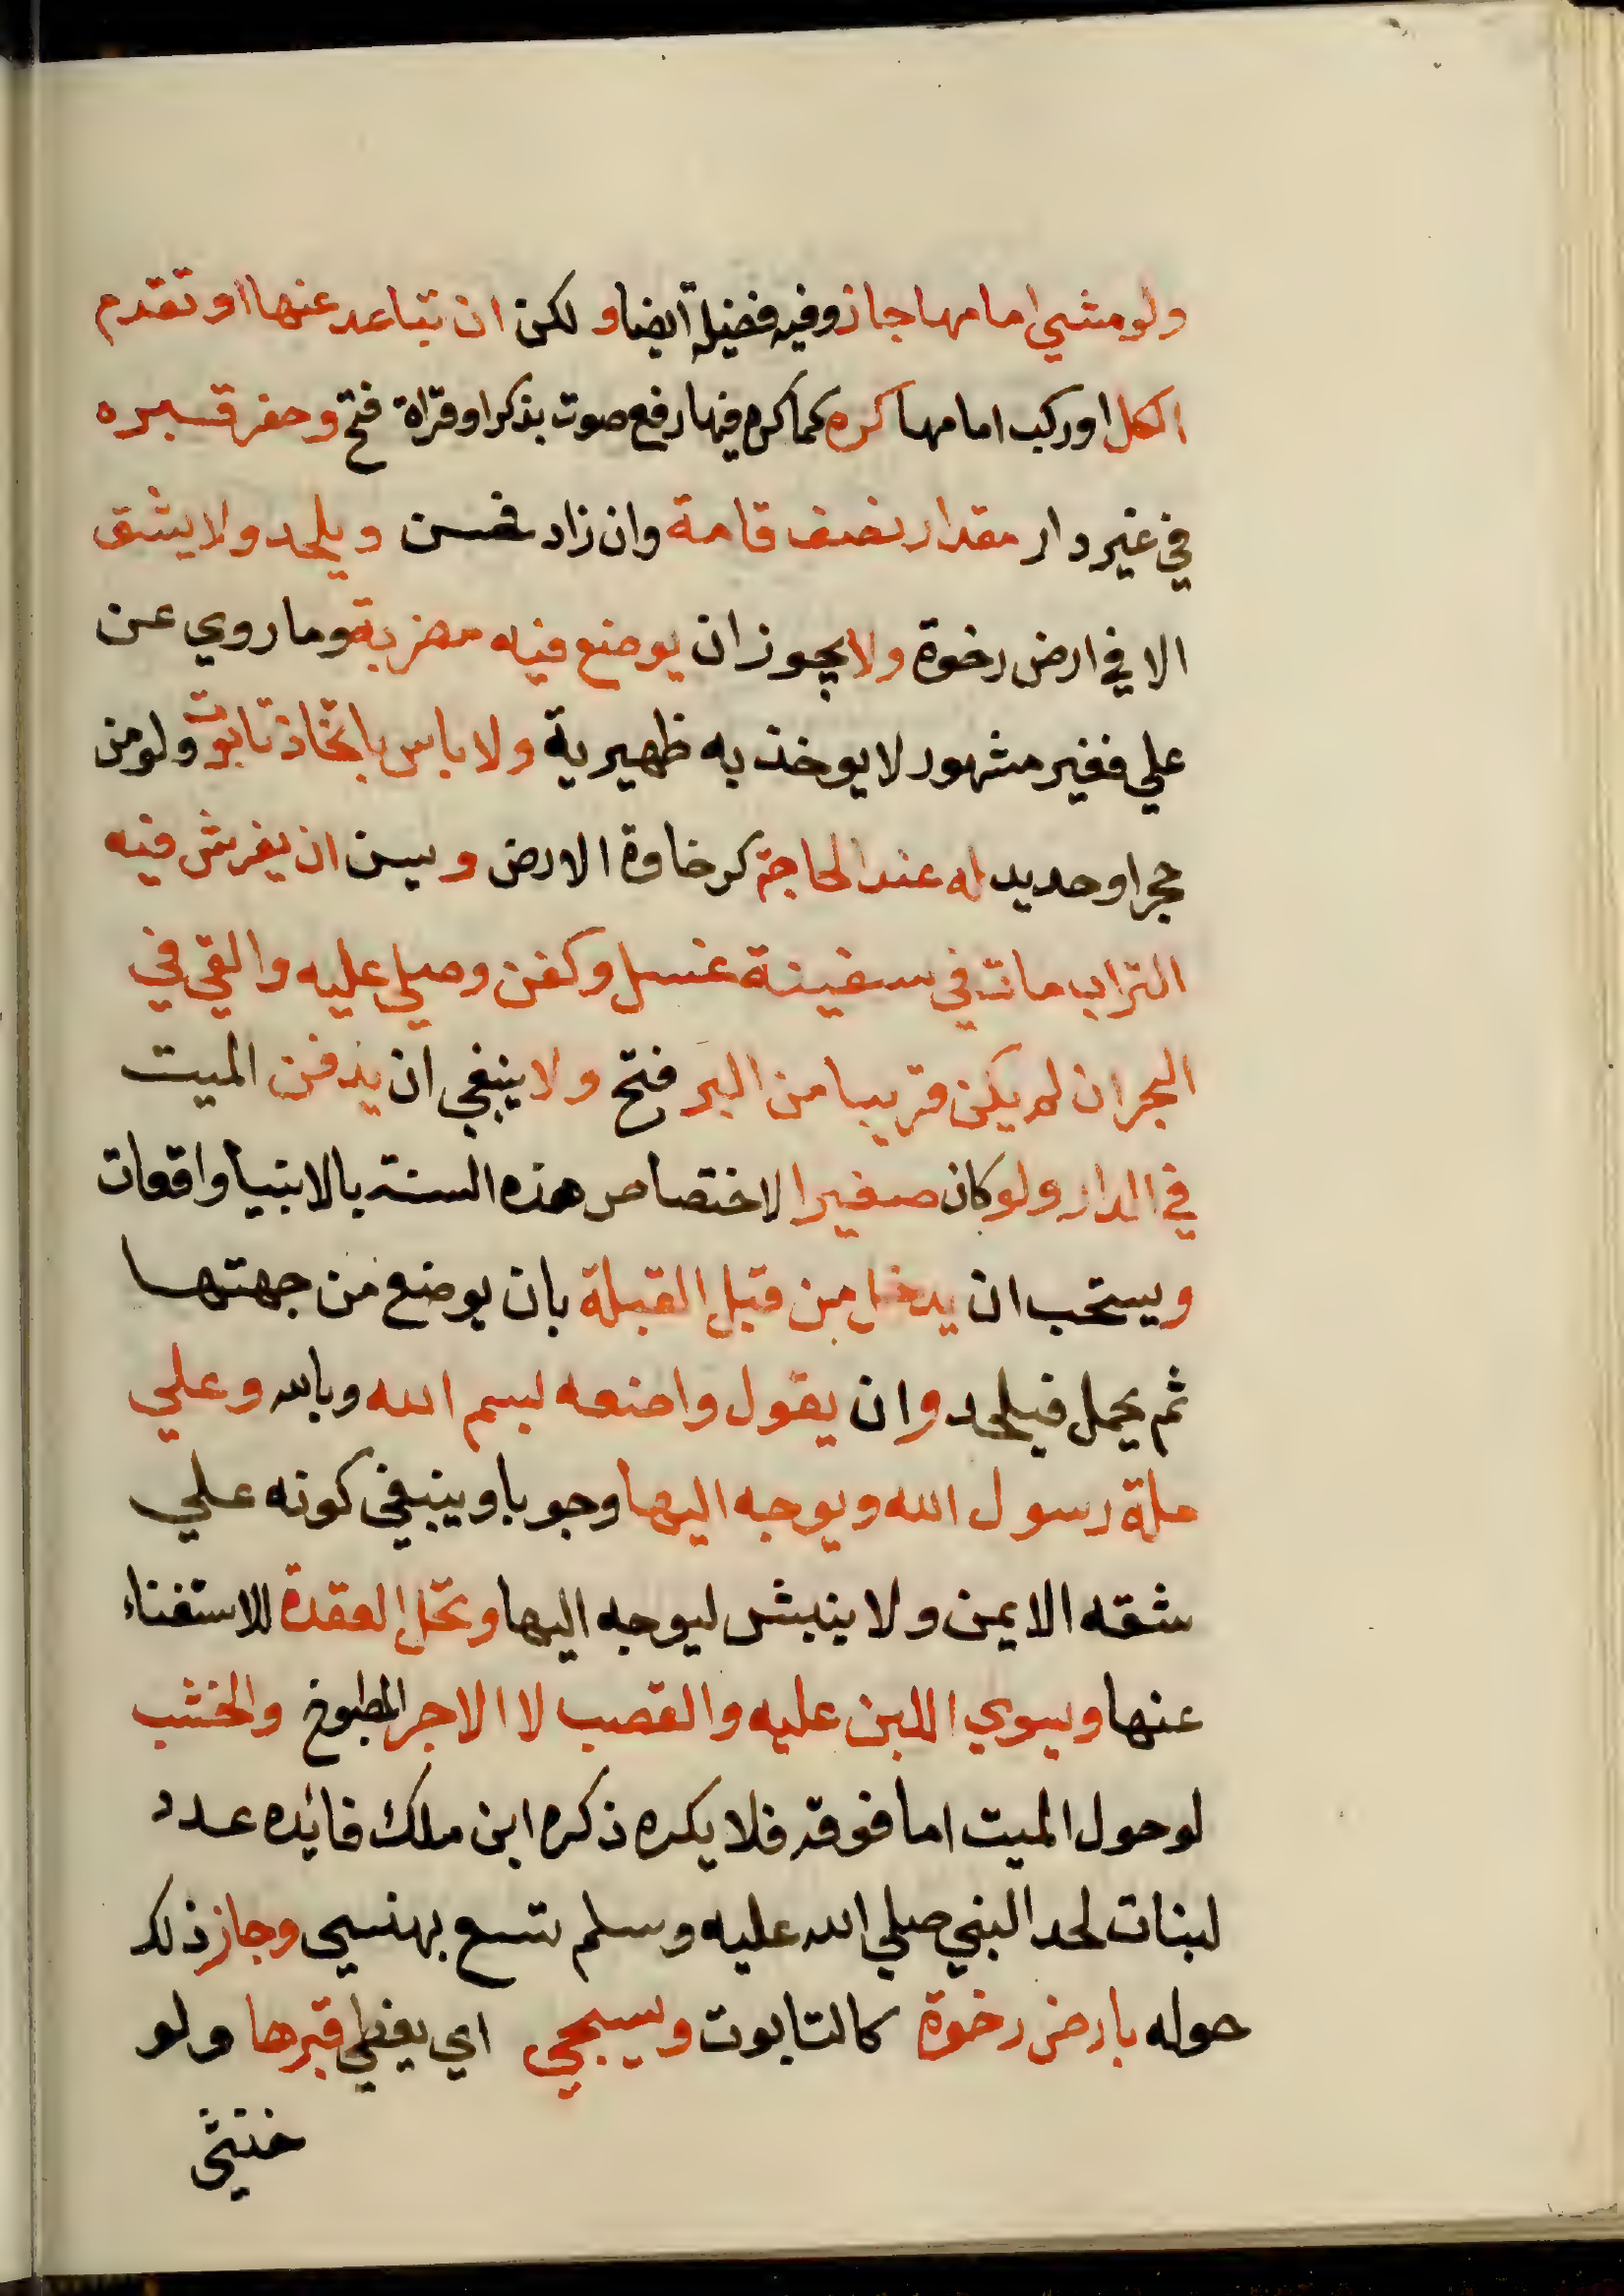 ولو مشي امامها جاز وفيه فضيلة أيضا و لكن ان تباعد عنها او تقدم
الكل او ركب امامها كره كما كره فيها رفع صوت بذكر او قراة فتح و حفر قبره
في غير دار مقدار نصف قامة وان زاد فحسن و يلحد ولا يشق
الا في ارض رخوة ولا يجوز ان يوضع فيه مضربة وما روي عن
علي فغير مشهور لا يوخذ به ظهيرية ولا باس باتخاذ تابوت ولو من
حجر او حديد له عند الحاجة كرخاوة الارض و يسن ان يفرش فيه
التراب مات في سفينة غسل وكفن وصلي عليه والقي في
البحر ان لم يكن قريبا من البر فتح ولا ينبغي ان يدفن الميت
في الدار ولو كان صغيرا لاختصاص هذه السنة بالانبيا واقعات
ويستحب ان يدخل من قبل القبلة بان يوضع من جهتها
ثم يحمل فيلحد وان يقول واضعه بسم الله وبالله وعلي
ملة رسول الله ويوجه اليها وجوبا وينبغي كونه علي
شقه الايمن ولا ينبش ليوجه اليها وتحل العقدة للاستغناء
عنها ويسوي اللبن عليه والقصب لا الاجر المطبوخ والخشب
لو حول الميت اما فوقه فلا يكره ذكره ابن ملك فائده عدد
لبنات لحد النبي صلي الله عليه وسلم تسع بهنسي وجاز ذلك
حوله بارض رخوة كالتابوت ويسجي اي يغطي قبرها ولو
خنثي